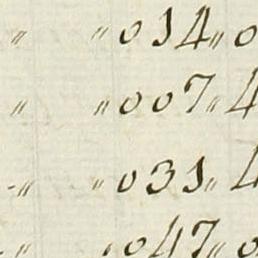 〃 〃014〃0
〃 〃007〃4
-〃 〃031〃4
-〃 〃047〃0